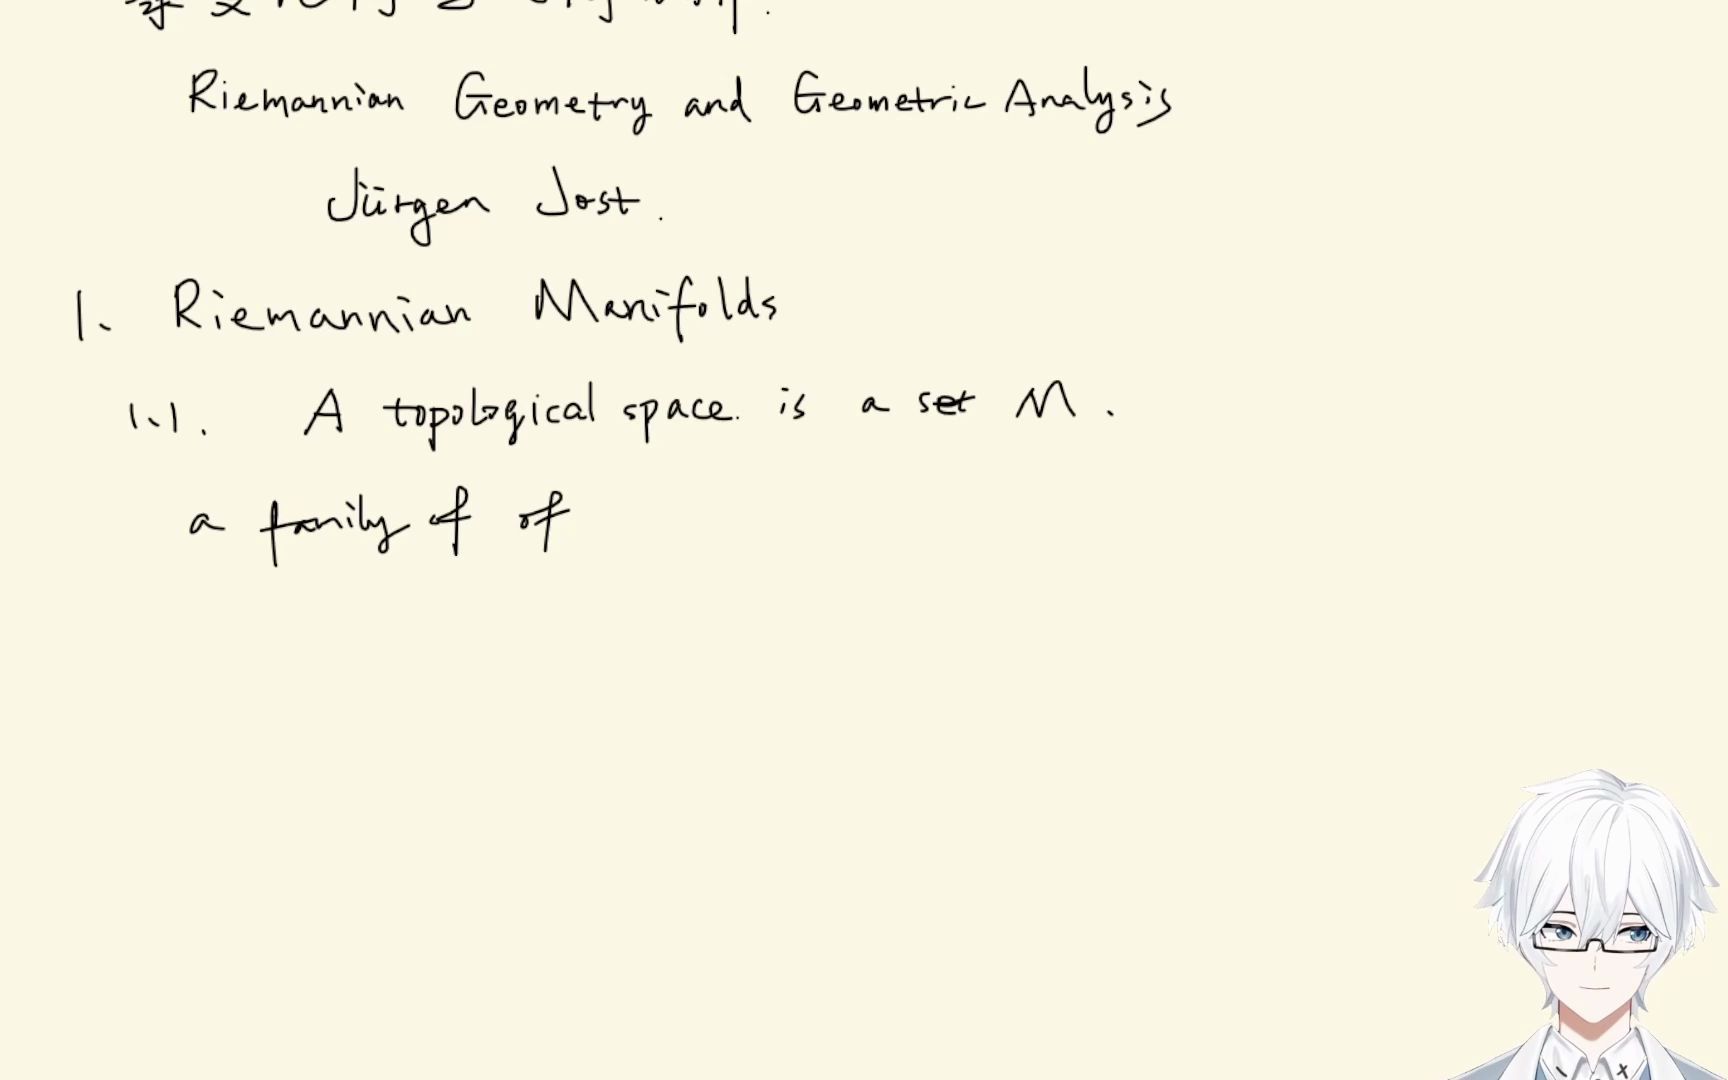 Riemannian Geometry and Geometric Analysis
Jürgen Jost.
1. Riemannian Manifolds
1.1. A topological space. is a set M.
a family of of